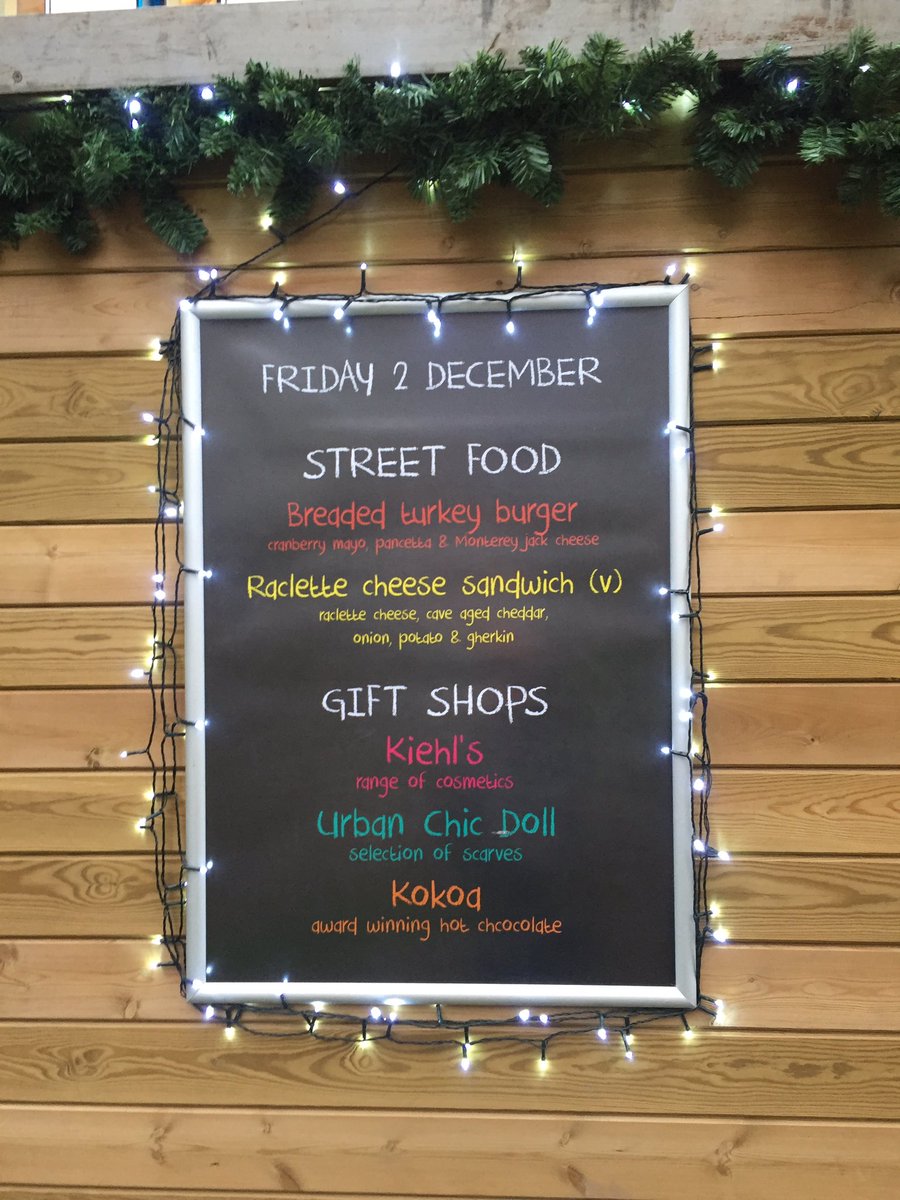 FRIDAY 2 DECEMBER
STREET FOOD
Breaded turkey burger
cranberry mayo, pancetta & Monterey jack cheese
Raclette cheese sandwich (v)
raclette cheese, cave aged cheddar,
onion, potato & gherkin
GIFT SHOPS
Kiehl's
range of cosmetics
Urban Chic Doll
selection of scarves
Kokoa
award winning hot chcocolate